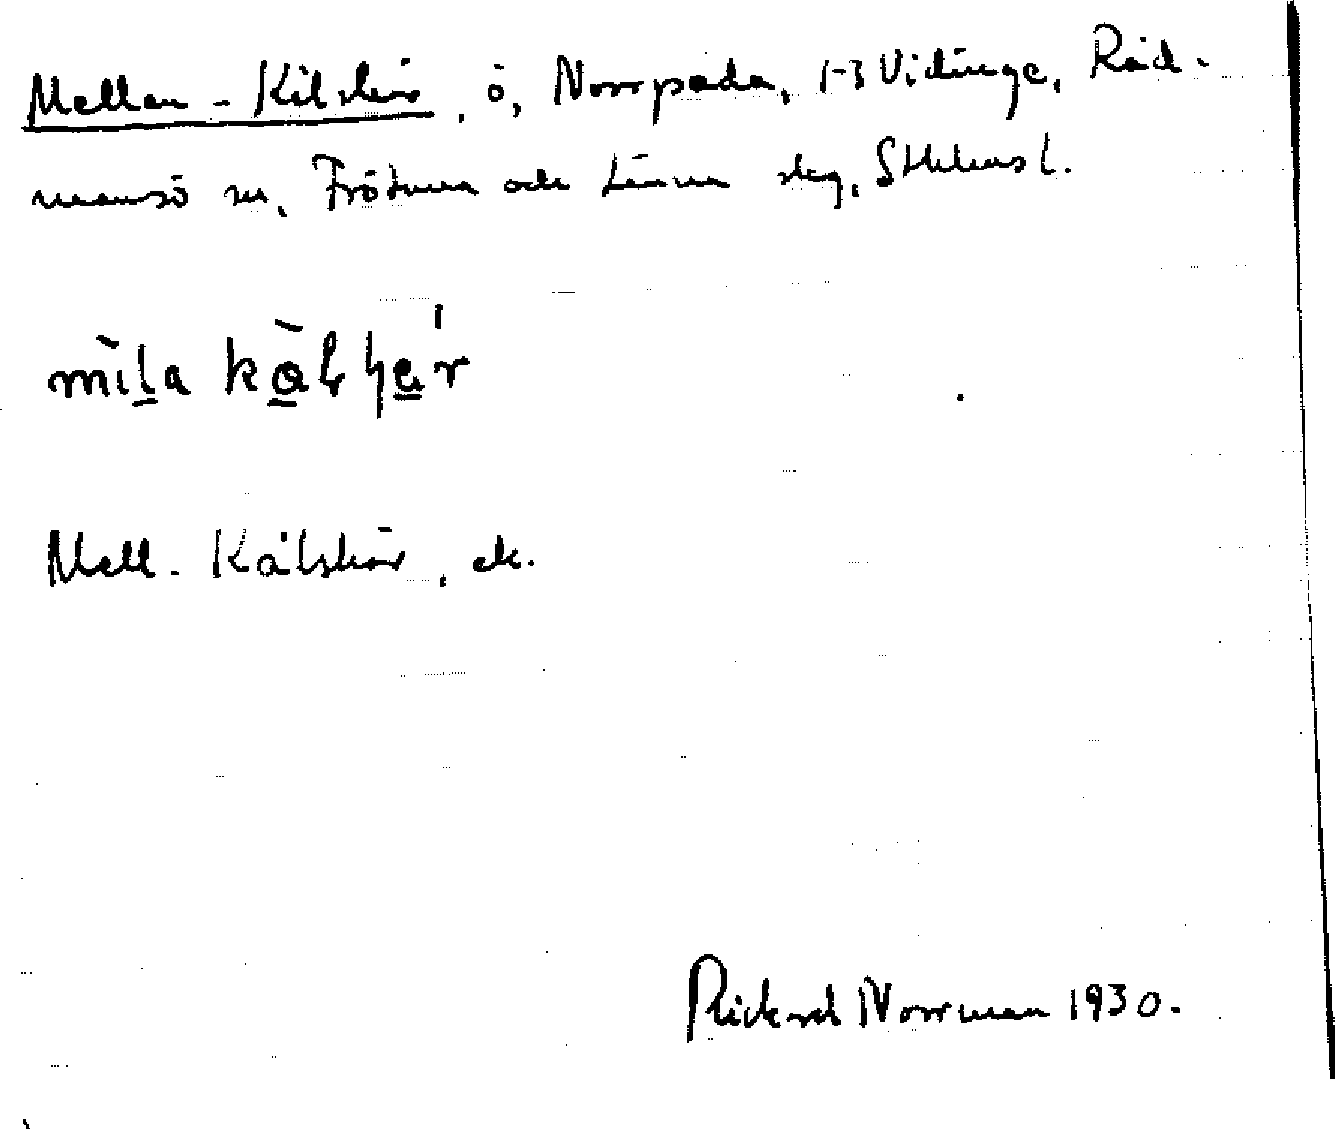 Mellan-Kilskär, ö, Norrpada, 1-3 Vidinge, Råd-
mansö sn, Frötuna och Länna skg, Sthlms l.
Mell. Kålskär, ek.
Rickard Norrman 1930.